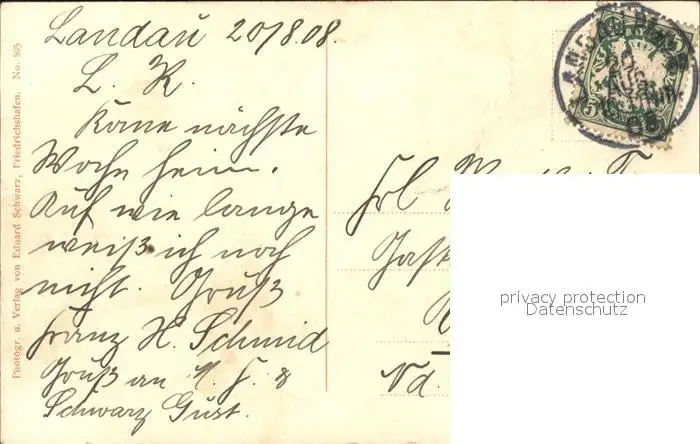 Landau 20/8.08.
L. K.
Kome nächste
Woche heim.
Auf wie lange
weiß ich noch
nicht. Gruß
Franz H. Schmid
Gruß an
Schwarz Gust.
Photogr. u. Verlag von Eduard Schwarz, Friedrichshafen. No. 505
LANDAU
20
AUG
5
Frl
Gast
Nd.
privacy protection
Datenschutz